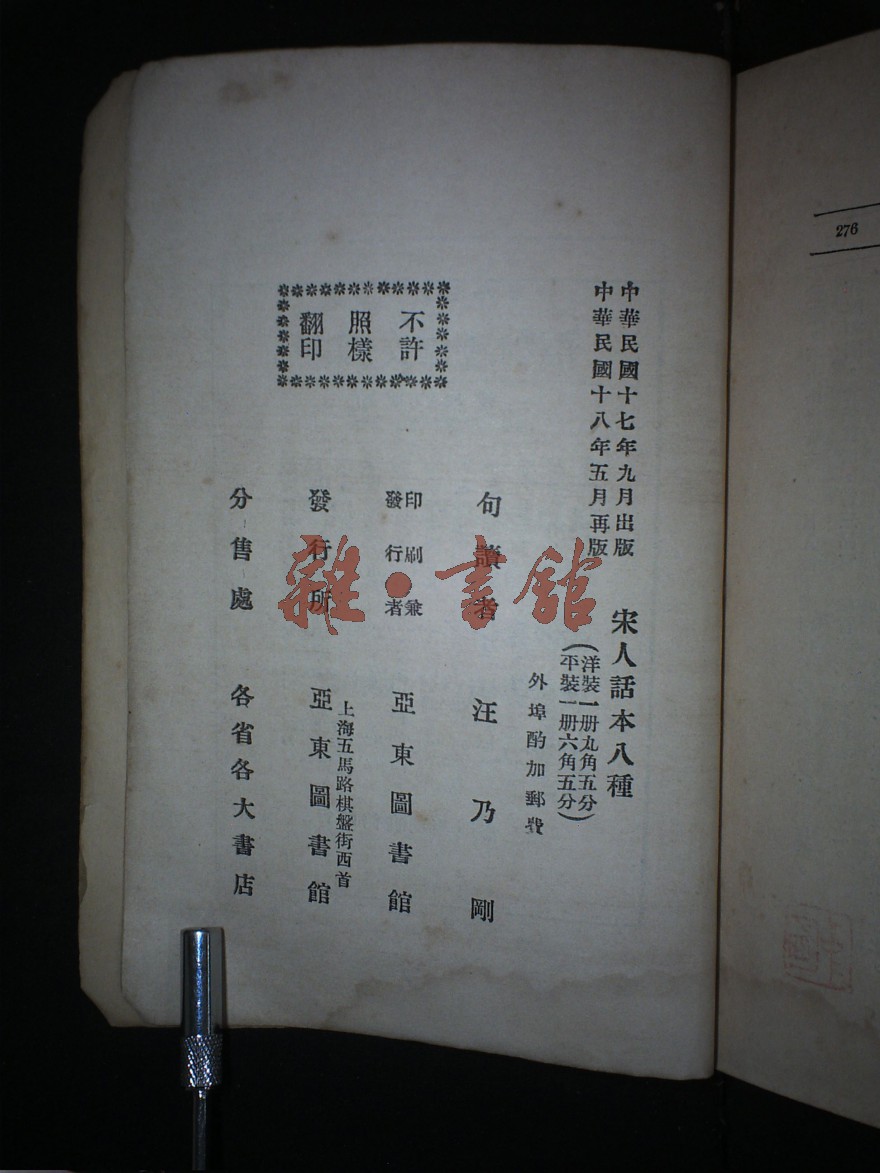 中華民國十七年九月出版
中華民國十八年五月再版
宋人話本八種
(洋裝一册九角五分
平裝一册六角五分)
外埠酌加郵費
句讀者 汪乃剛
印刷兼
發行者
亞東圖書館
上海五馬路棋盤街西首
發行所 亞東圖書館
分售處 各省各大書店
不許
照樣
翻印
276
雜·書館